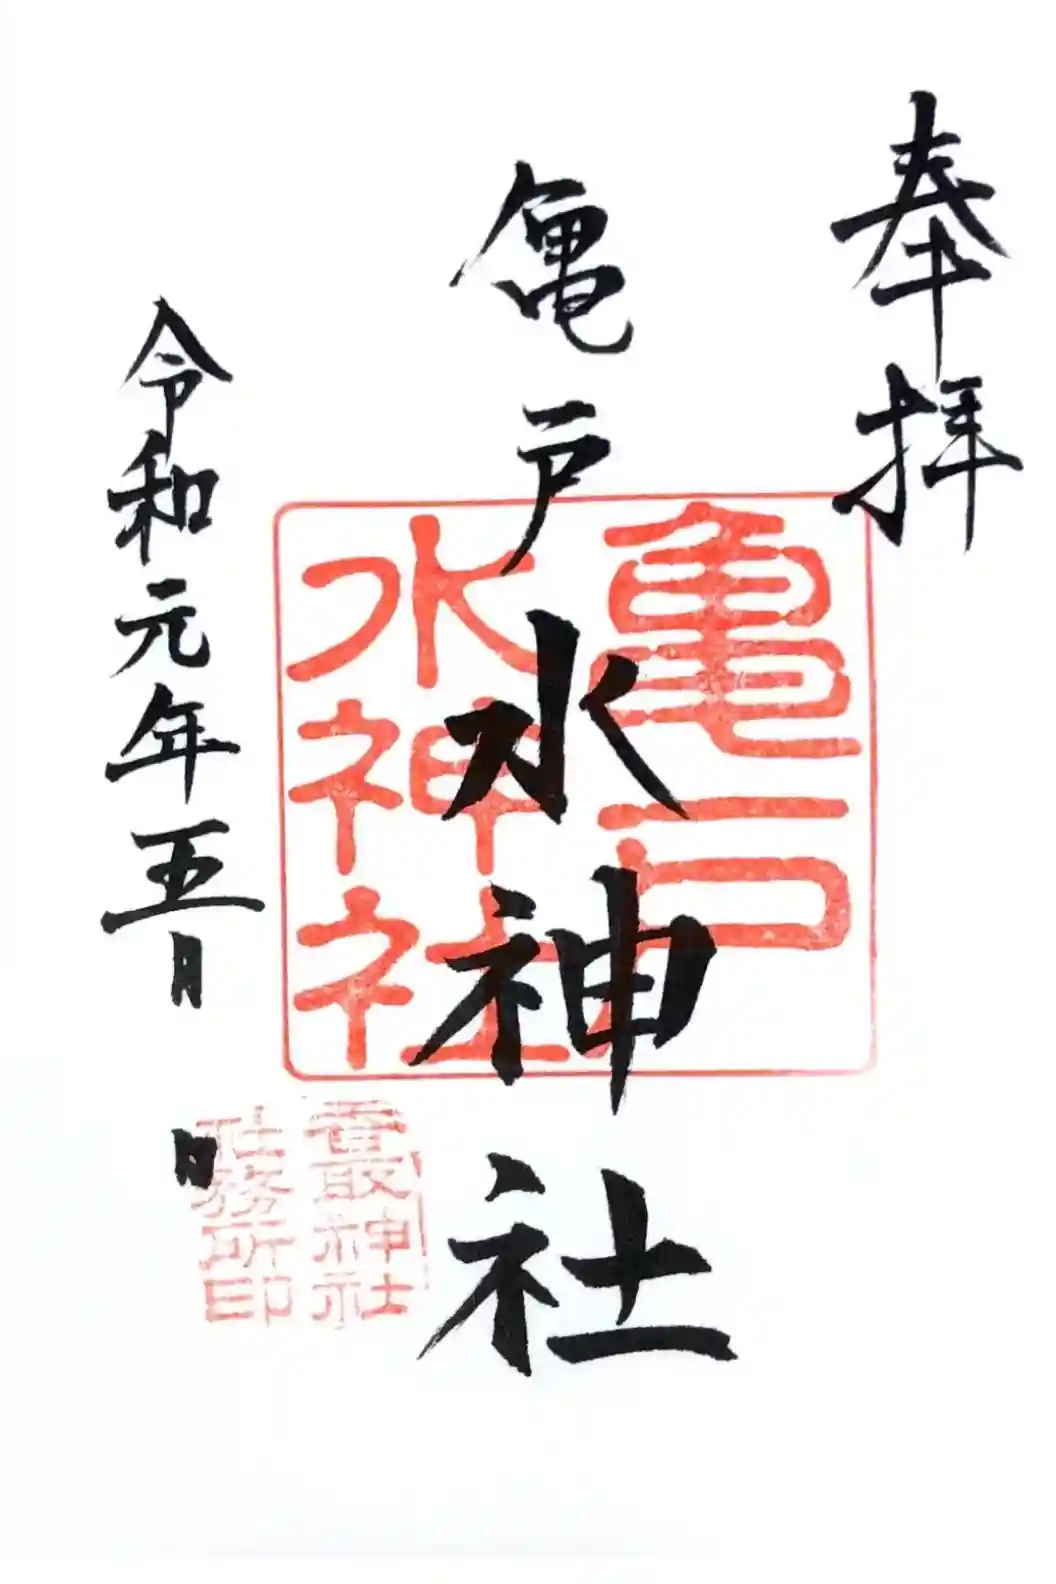 奉拝
亀戸水神社
令和元年五月 日
亀戸
水神社
香取神社
社務所印